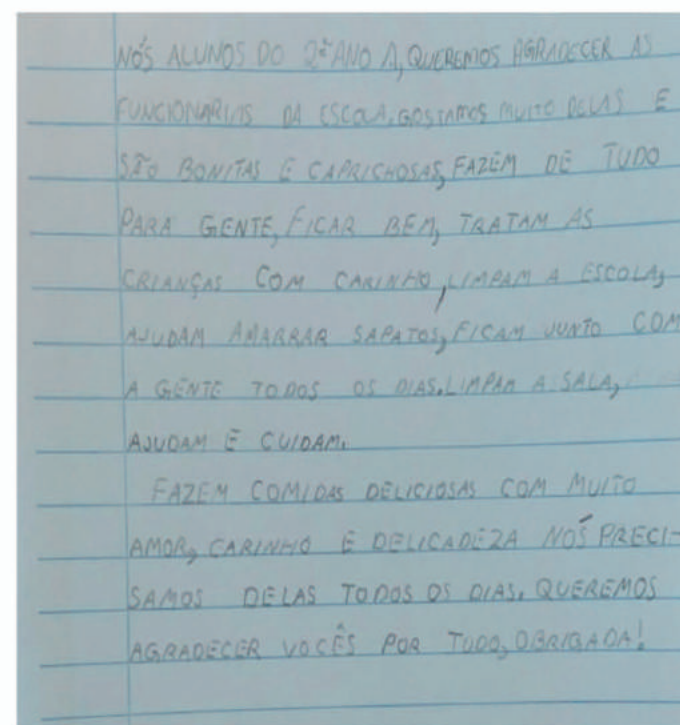 NÓS ALUNOS DO 2º ANO A, QUEREMOS AGRADECER AS
FUNCIONARIAS DA ESCOLA. GOSTAMOS MUITO DELAS E
SÃO BONITAS E CAPRICHOSAS, FAZEM DE TUDO
PARA GENTE, FICAR BEM, TRATAM AS
CRIANÇAS COM CARINHO, LIMPAM A ESCOLA,
AJUDAM AMARRAR SAPATOS, FICAM JUNTO COM
A GENTE TODOS OS DIAS. LIMPAM A SALA,
AJUDAM E CUIDAM.
FAZEM COMIDAS DELICIOSAS COM MUITO
AMOR, CARINHO E DELICADEZA NÓS PRECI-
SAMOS DELAS TODOS OS DIAS. QUEREMOS
AGRADECER VOCÊS POR TUDO, OBRIGADA!